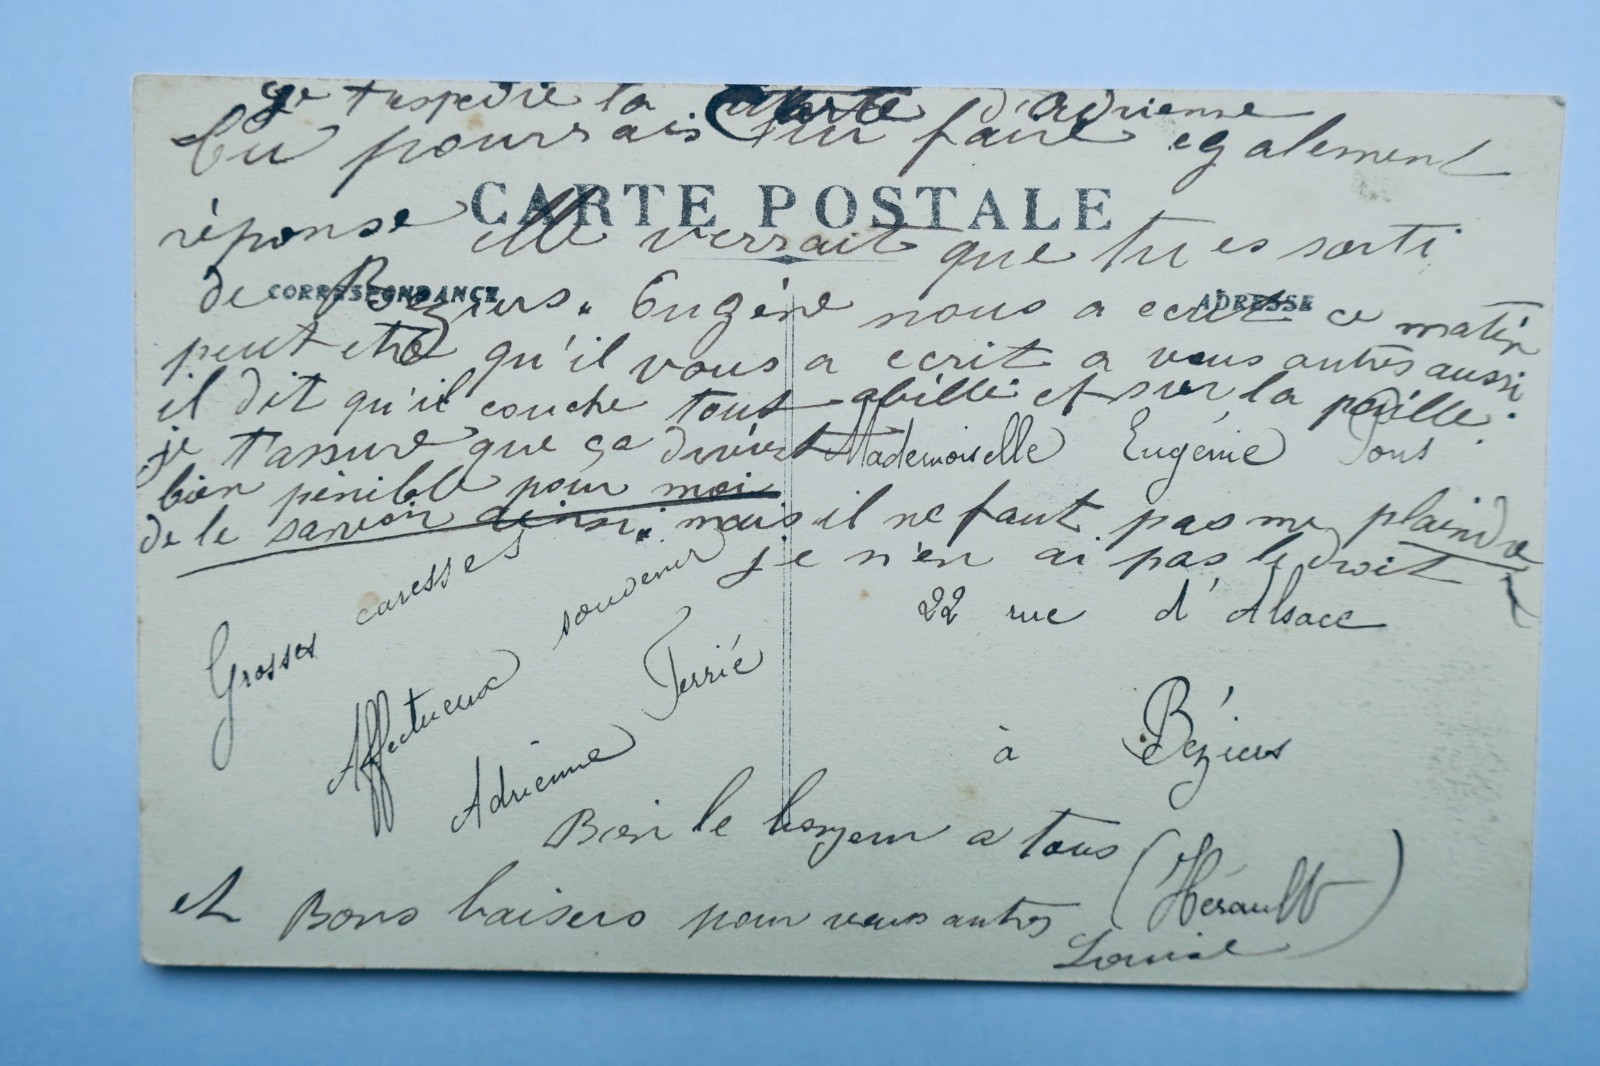 Je t'espedie la Carte d'Adrienne
tu pourrais lui faire egalement
CARTE POSTALE
réponse elle verrait que tu es sorti
de Beziers. Eugène nous a ecrit ce matin
CORRESPONDANCE
ADRESSE
peut etre qu'il vous a ecrit a vous autres aussi
il dit qu'il couche tout abillé et sur la paille.
je t'assure que ça devient
bien pénible pour moi
de le savoir ainsi. mais il ne faut pas me plaindre
je n'en ai pas le droit
Mademoiselle Eugénie Pons
22 rue d'Alsace
à Béziers
(Hérault)
Grosses caresses
Affectueux souvenir
Adrienne Ferrié
Bien le bonjour a tous
et Bons baisers pour vous autres
Louise